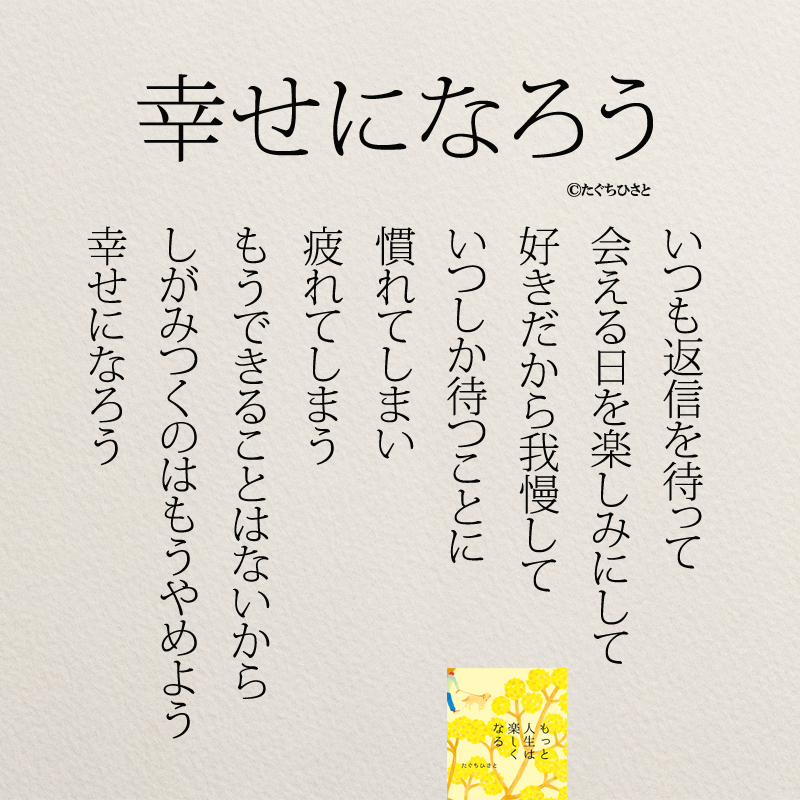 幸せになろう
©たぐちひさと
いつも返信を待って
会える日を楽しみにして
好きだから我慢して
いつしか待つことに
慣れてしまい
疲れてしまう
もうできることはないから
しがみつくのはもうやめよう
幸せになろう
もっと
人生は
楽しく
なる
たぐちひさと